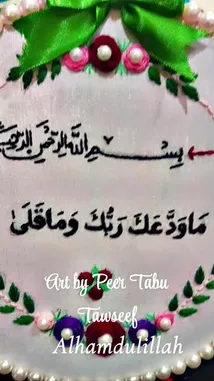 بسم الله الرحمن الرحيم
مَاوَدَّعَكَ رَبُّكَ وَمَاقَلَىٰ
Art by Peer Tabu
Tawseef
Alhamdulillah